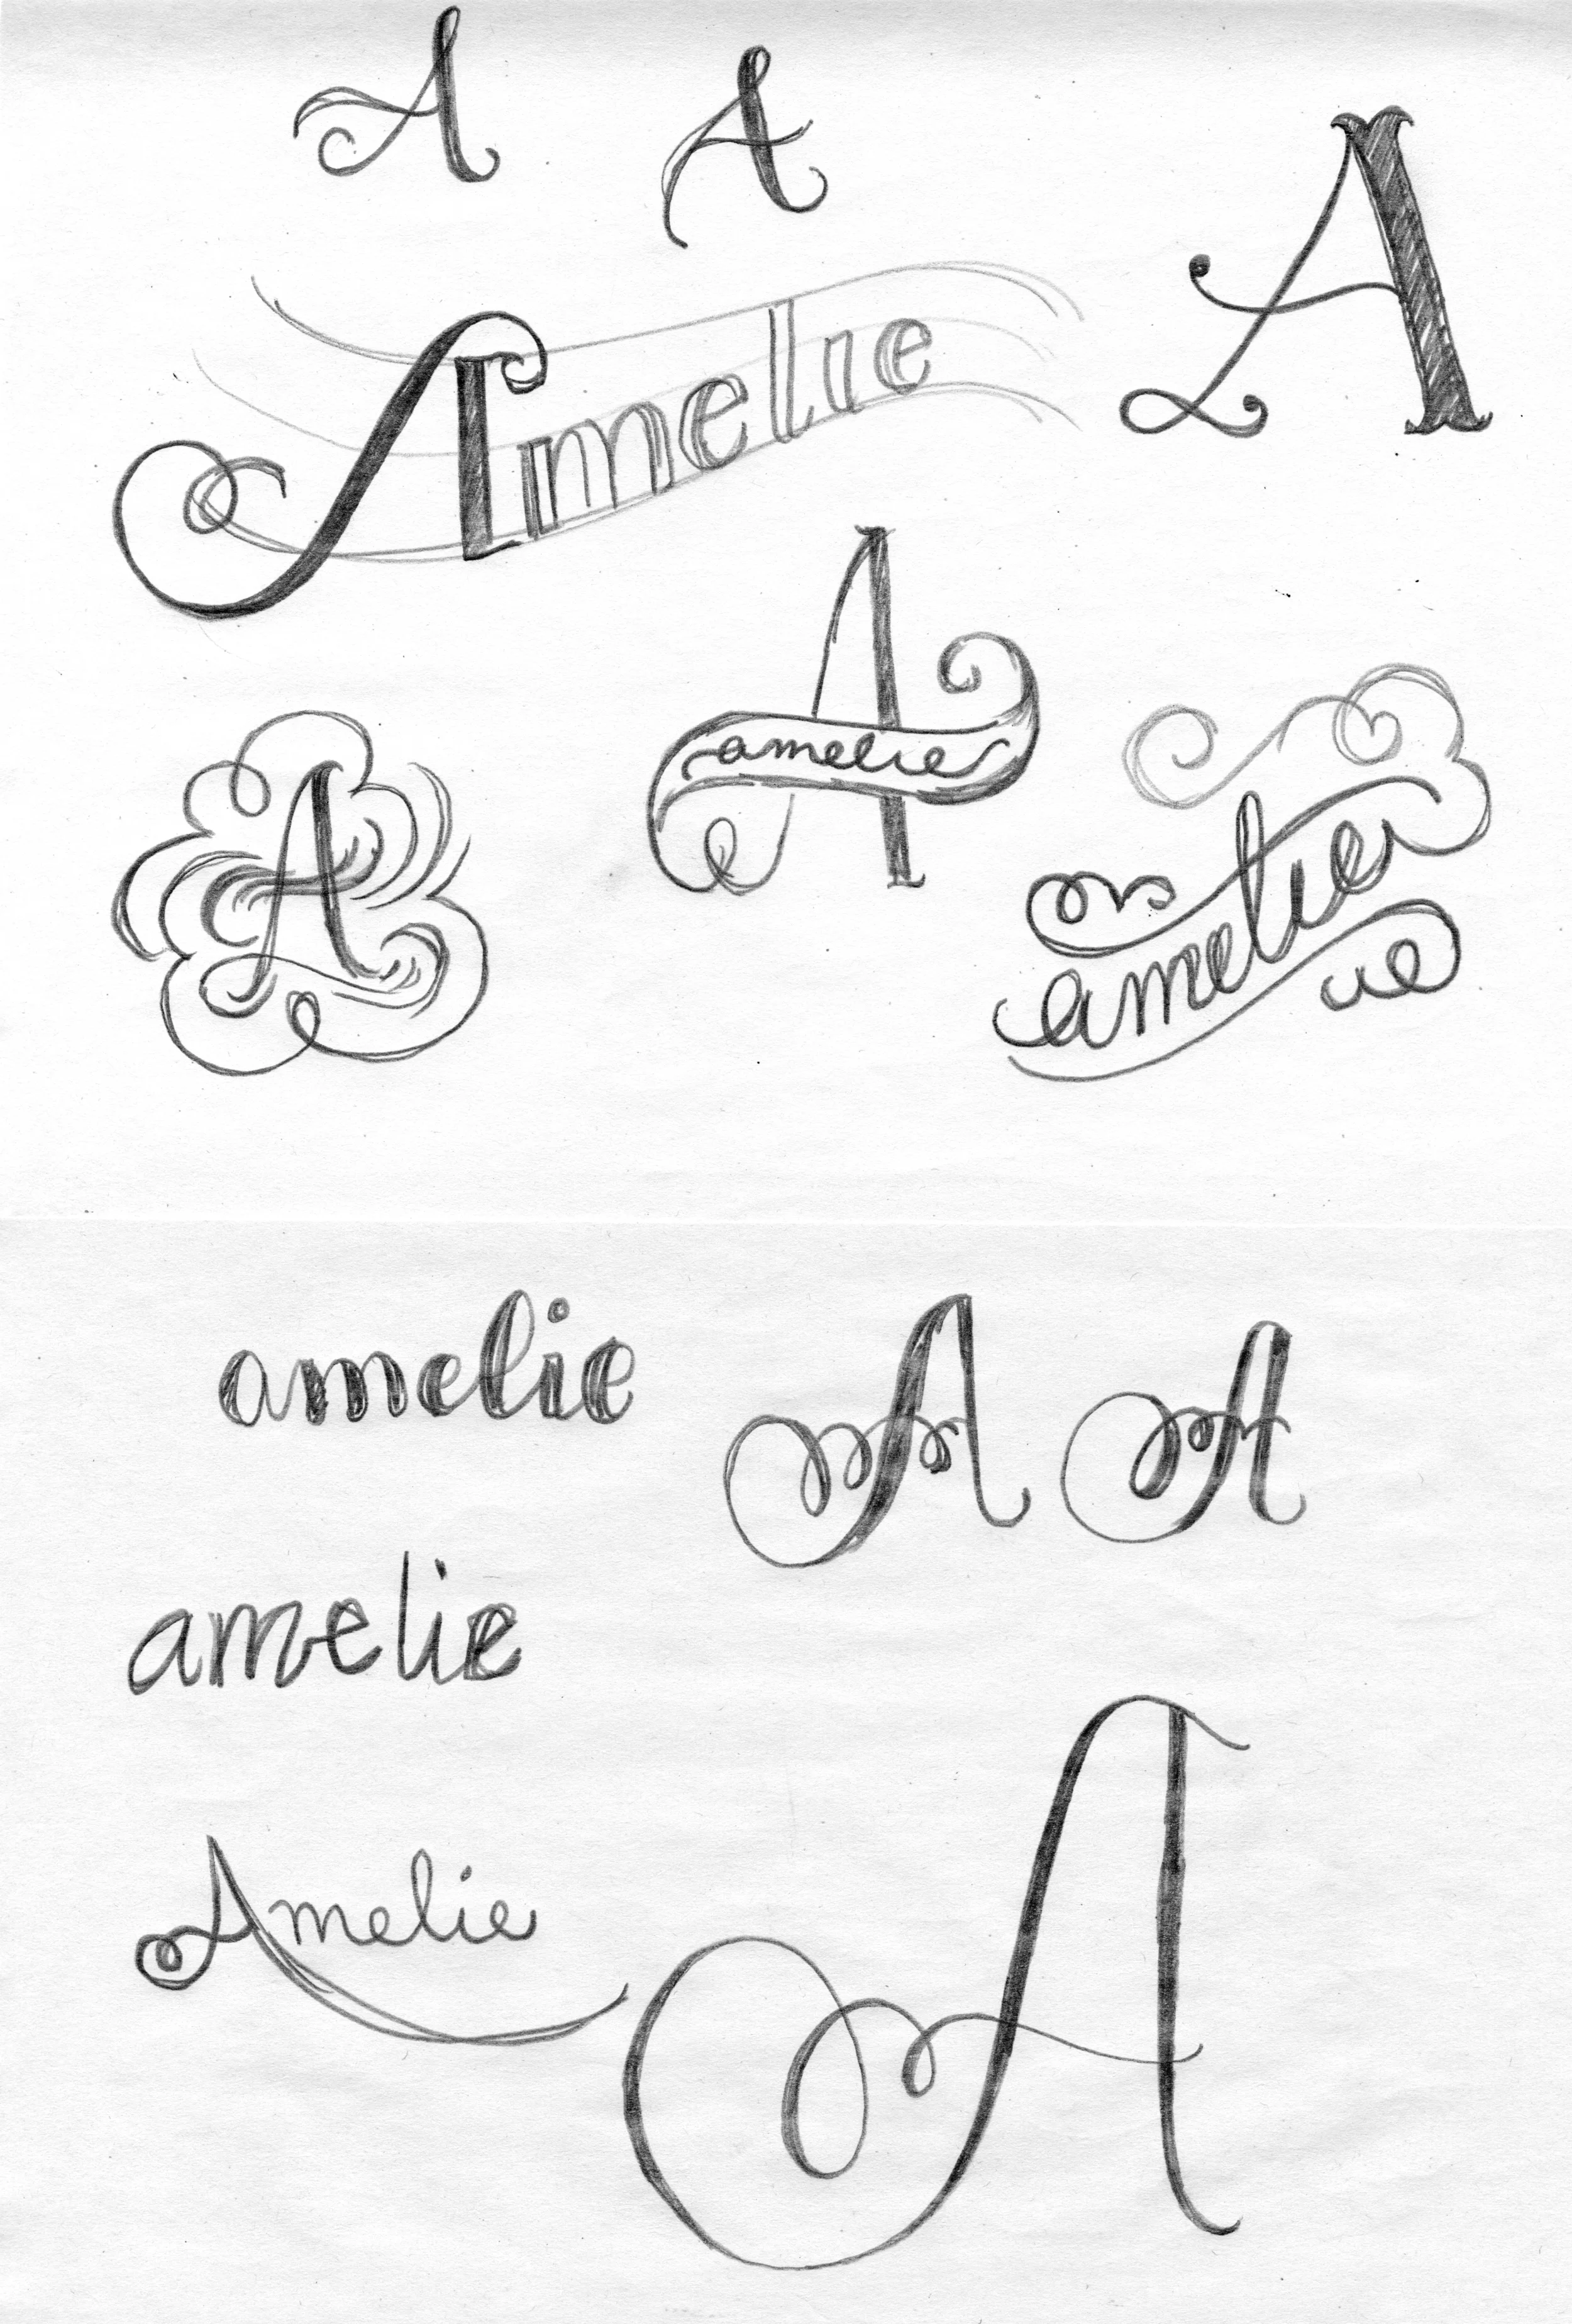 A
A
A
Amelie
A
amelie
A
amelie
amelie
A
A
amelie
Amelie
A